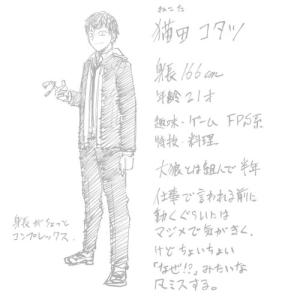 ねこた
猫田 コタツ
身長 166cm
年齢 21才
趣味・ゲーム FPS系
特技・料理
大狼とは組んで半年
仕事で言われる前に
動くぐらいには
マジメで気がきく。
けどちょいちょい
「なぜ!?」みたいな
凡ミスする。
身長がちょっと
コンプレックス.